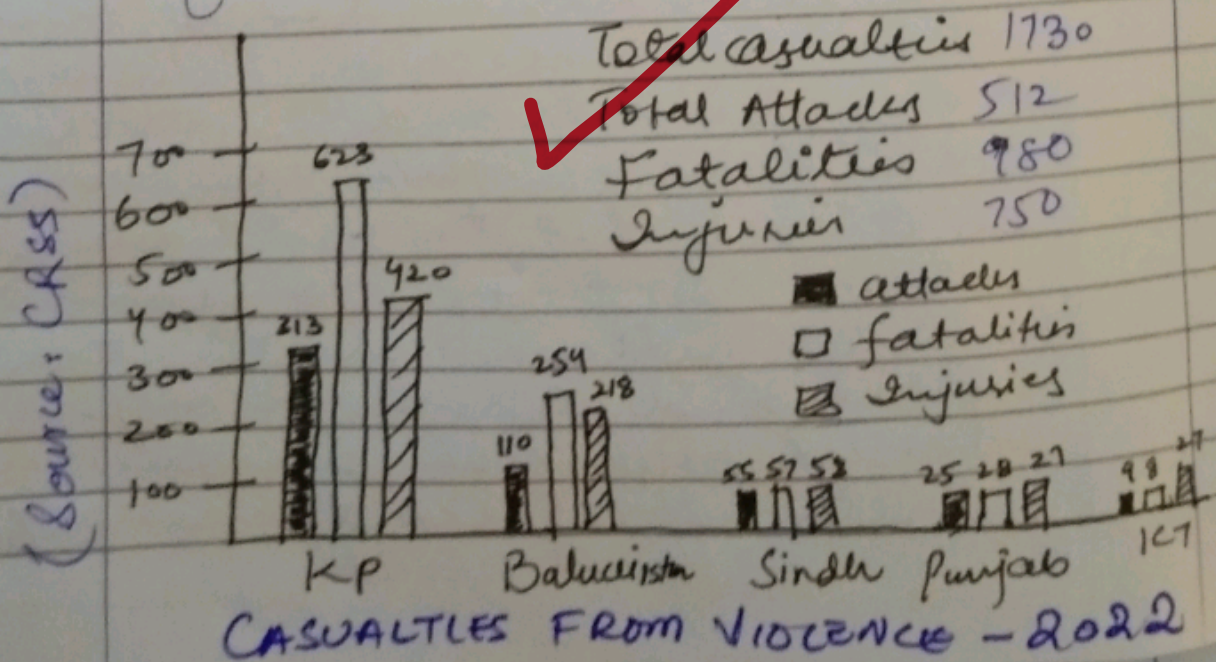 Total casualties 1730
Total Attacks 512
Fatalities 980
Injuries 750
attacks
fatalities
Injuries
(Source: CRSS)
700
600
500
400
300
200
100
313 623 420
110 254 218
55 57 58
25 28 27
9 8 27
KP Baluchistan Sindh Punjab ICT
CASUALTIES FROM VIOLENCE - 2022